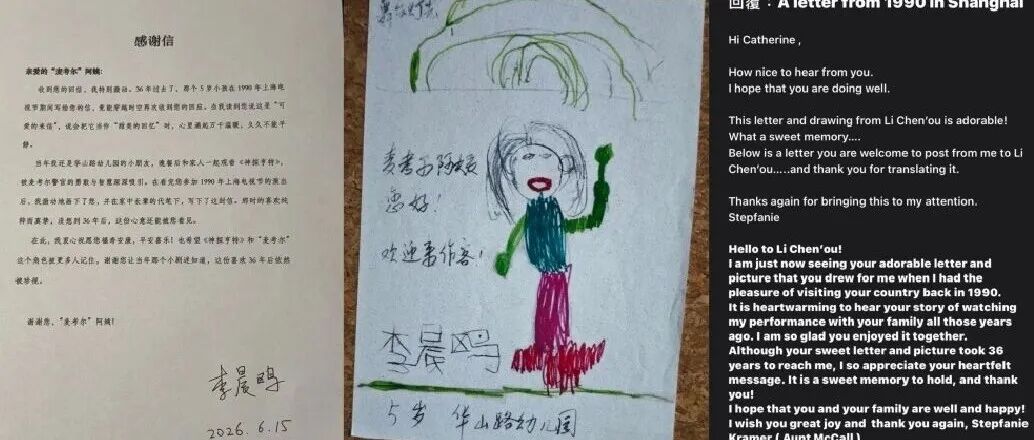 感谢信
亲爱的“麦考尔”阿姨:
收到您的回信，我特别激动。36年过去了，那个5岁小孩在1990年上海电
视节期间写给您的信，竟能穿越时空再次收到您的回应。当我读到您说这是“可
爱的来信”，说会把它当作“甜美的回忆”时，心里涌起万千温暖，久久不能平
静。
当年我还是华山路幼儿园的小朋友，晚餐后和家人一起观看《神探亨特》，
被麦考尔警官的勇敢与智慧深深吸引。在看完您参加1990年上海电视节的演出
后，我激动地画下了您，并在家中长辈的代笔下，写下了这封信。那时的喜欢纯
粹而真挚，没想到36年后，这份心意还能被您看见。
在此，我衷心祝愿您福寿安康，平安喜乐！也希望《神探亨特》和“麦考尔”
这个角色被更多人记住。谢谢您让当年那个小剧迷知道，这份喜欢36年后依然
被珍视。
谢谢您，“麦考尔”阿姨！
李晨鸥
2026.6.15
麦考尔阿姨
您好！
欢迎来作客！
李晨鸥
5岁 华山路幼儿园
回覆：A letter from 1990 in Shanghai
Hi Catherine ,
How nice to hear from you.
I hope that you are doing well.
This letter and drawing from Li Chen’ou is adorable!
What a sweet memory....
Below is a letter you are welcome to post from me to Li
Chen’ou.....and thank you for translating it.
Thanks again for bringing this to my attention.
Stepfanie
Hello to Li Chen’ou!
I am just now seeing your adorable letter and
picture that you drew for me when I had the
pleasure of visiting your country back in 1990.
It is heartwarming to hear your story of watching
my performance with your family all those years
ago. I am so glad you enjoyed it together.
Although your sweet letter and picture took 36
years to reach me, I so appreciate your heartfelt
message. It is a sweet memory to hold, and thank
you!
I hope that you and your family are well and happy!
I wish you great joy and thank you again, Stepfanie
Kramer ( Aunt McCall )